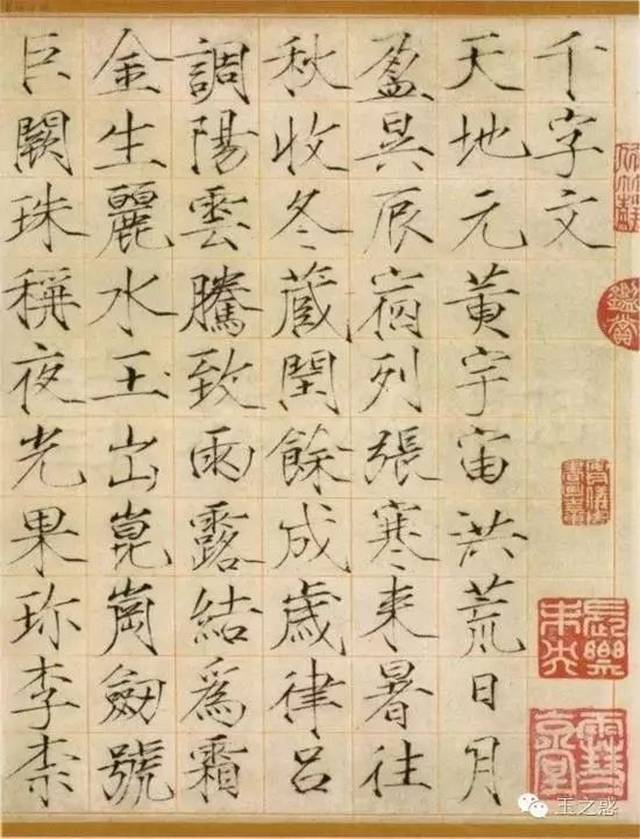 千字文
天地元黃宇宙洪荒日月
盈昃辰宿列張寒来暑往
秋收冬蔵閏餘成歳律呂
調陽雲騰致雨露結爲霜
金生麗水玉出崑崗劒號
巨闕珠稱夜光果珎李柰
鑑賞
玉之惑